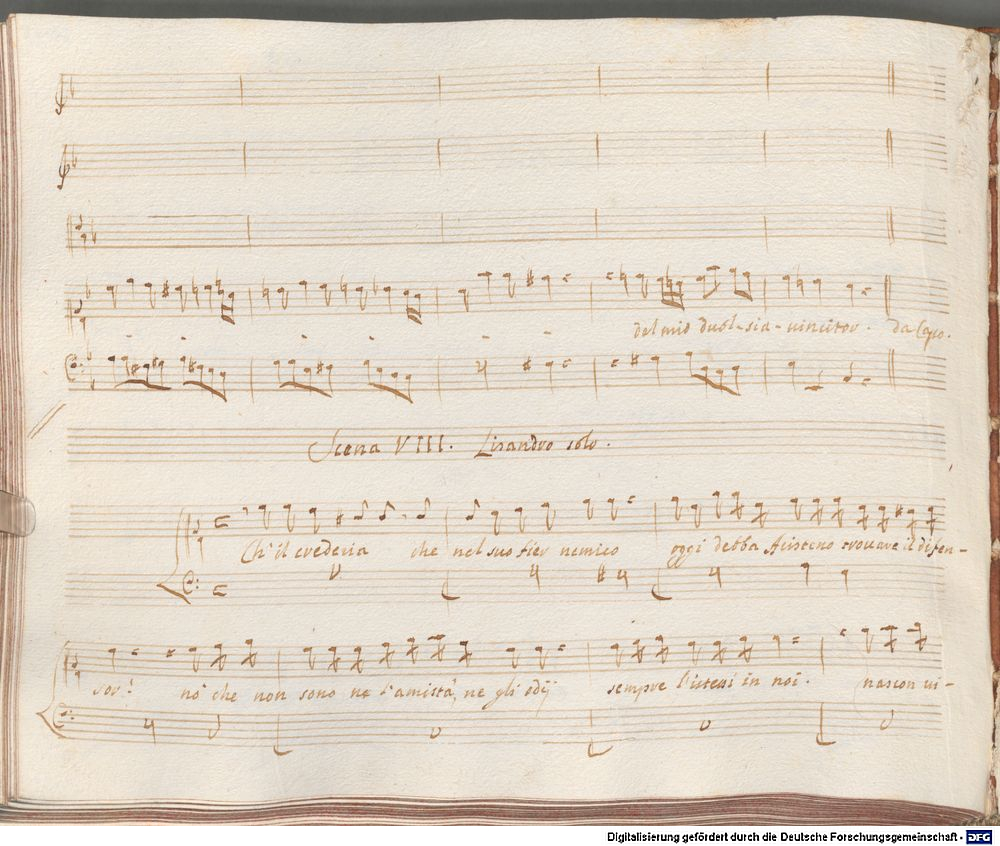 del mio duol sia - vincitor. da Capo.
Scena VIII. Lisandro solo.
Ch'il crederia che nel suo fier nemico oggi debba Aristeno trovare il difen-
sor! no' che non sono ne l'amistà, ne gli odij sempre l'istessi in noi. nascon vi-
Digitalisierung gefördert durch die Deutsche Forschungsgemeinschaft - DFG